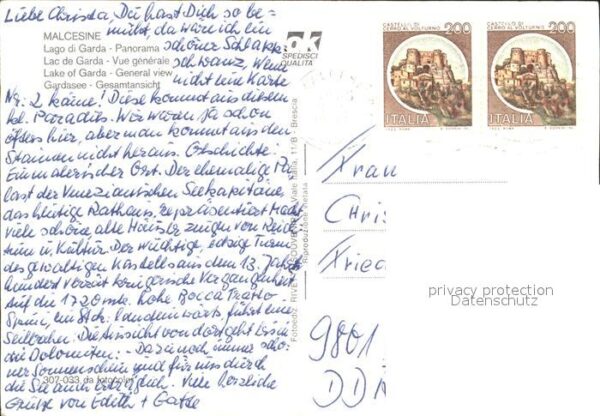 Liebe Christa, Du hast Dich so be-
müht, da wäre ich ein
schöner Schlapp-
schwanz, wenn
nicht eine Karte
Nr. 2 käme! Diese kommt aus diesem
kl. Paradies. Wir waren ja schon
öfters hier, aber man kommt aus dem
Staunen nicht heraus. Geschichte:
Ein malerischer Ort. Der ehemalige Pa-
last der Venezianischen Seekapitäne
das heutige Rathaus, repräsentiert Macht
viele schöne alte Häuser zeugen von Reich-
tum u. Kultur. Der wuchtige, eckige Turm
des gewaltigen Kastells aus dem 13. Jahr-
hundert verrät kriegerische Vergangenheit
Auf die 1720 m hohe Bocca Tratto
Spini, ein Stck. landeinwärts, führt eine
Seilbahn. Die Aussicht von dort geht bis in
die Dolomiten: - Dazu noch immer schö-
ner Sonnenschein und für uns durch
die Sie auch erträglich. Viele herzliche
Grüße von Edith +
MALCESINE
Lago di Garda - Panorama
Lac de Garda - Vue générale
Lake of Garda - General view
Gardasee - Gesamtansicht
ok
SPEDISCI
QUALITÀ
CASTELLO DI
CERRO AL VOLTURNO 200
ITALIA
CASTELLO DI
CERRO AL VOLTURNO 200
ITALIA
Viale Italia, 11/B - Brescia
Riproduzione vietata
307-033 da fotocolor
Frau
Chris
Fried
9801
DD
privacy protection
Datenschutz